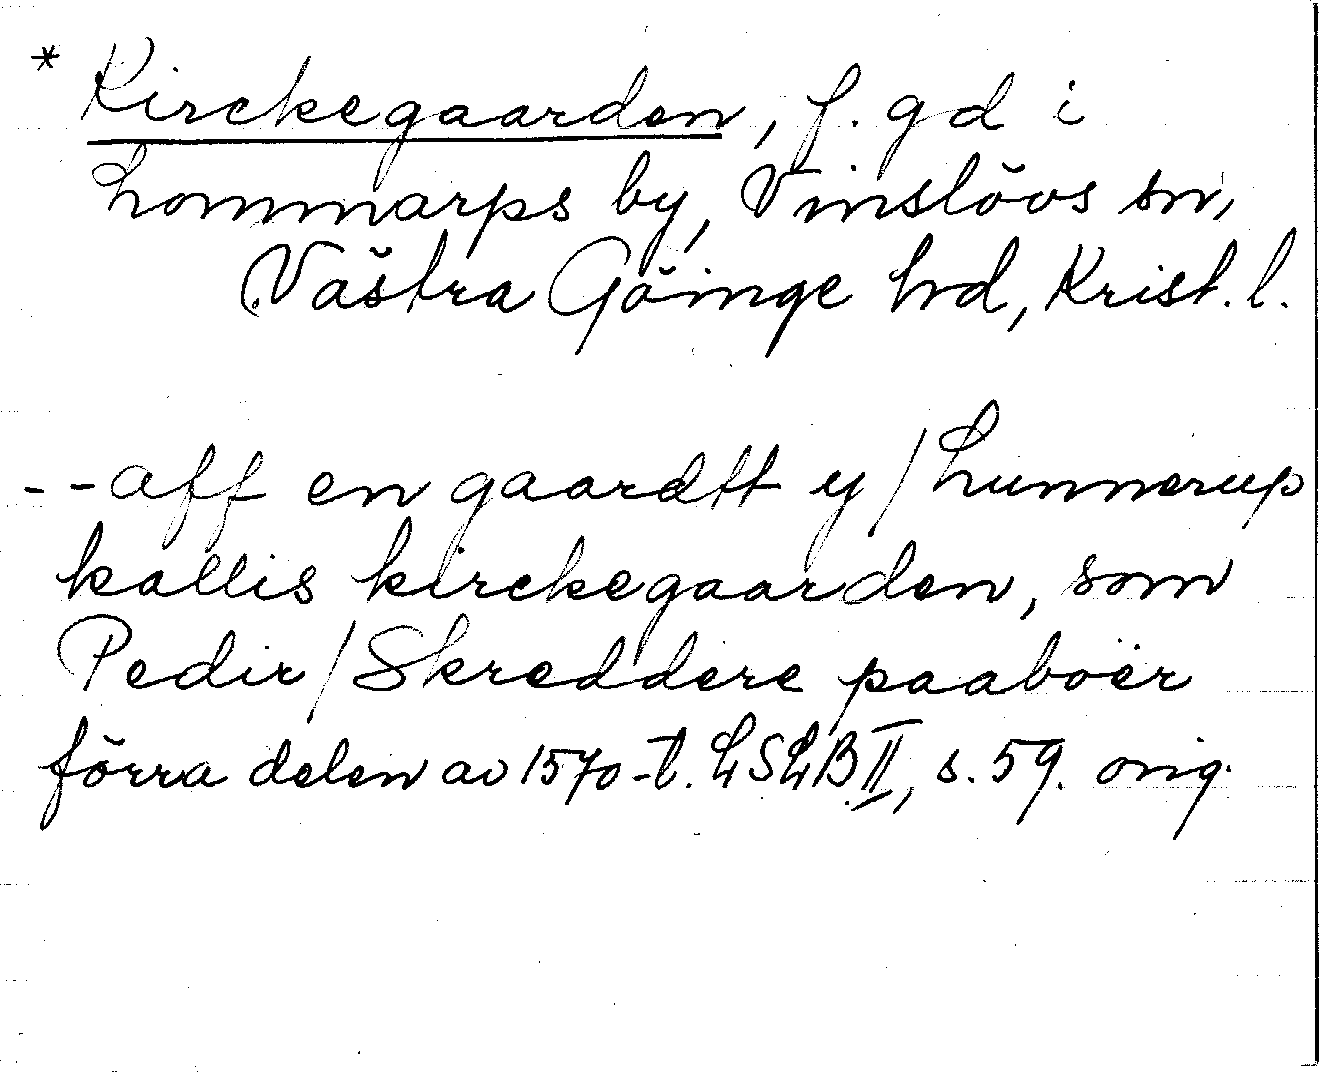 * Kirckegaarden, f. gd i
Lommarps by, Vinslövs sn,
Västra Göinge hd, Krist. l.
- - aff en gaardtt y / Lummerup
kallis kirckegaarden, som
Pedir / Skreddere paaboer
förra delen av 1570-t. LSLB II, s. 59. orig.